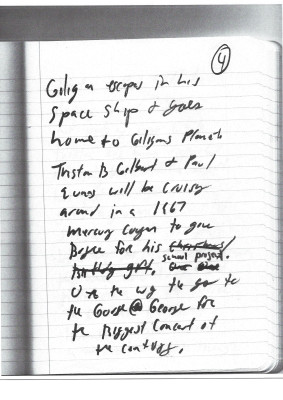 4
Gilig n escapes in his
Space Ship & goes
home to Giligans Planet
Tristan B Gilbert & Paul
Evans will be Cruisy
around in a 1967
Mercury Cougar to give
Boyce for his Christmas
school project.
Birthday gift.
On the way the go to
the Gorge @ George for
the Biggest Concert of
the century.